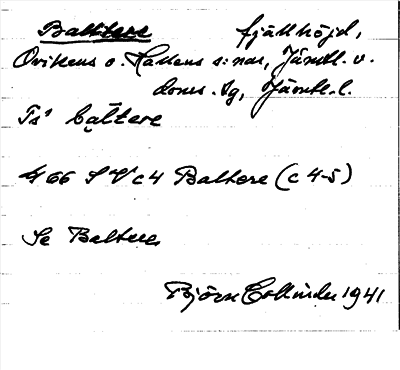 Baltere fjällhöjd,
Ovikens o. Hallens s:nar, Jämtl. v.
doms. lg, Jämtl. l.
Fs¹ ba̤ltere
G 66 S V c4 Baltere (c 4-5)
Se Baltere
Björn Collinder 1941